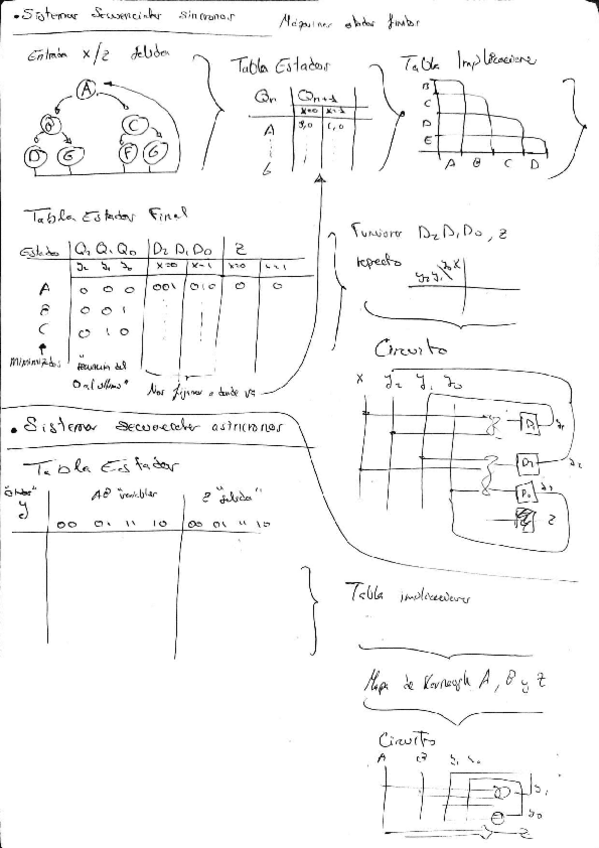 • Sistemas Secuenciales síncronos
Máquinas estados finitos
Entrada X/Z Salida
A
B C
D G F G
Tabla Estados
Qn Qn+1
x=0 x=1
A
Tabla Implicaciones
B
C
D
E
A B C D
Tabla Estados Final
Estados Q2 Q1 Q0 D2 D1 D0 Z
y2 y1 y0 x=0 x=1 x=0 x=1
A 0 0 0 001 010 0 0
B 0 0 1
C 0 1 0
minimizados
0 al último"
Nos fijamos a donde va
Funciones D2 D1 D0, Z
respecto
y2 y1 y0 x
Circuito
x y2 y1 y0
D1 y1
y2
D0 y0
Z
• Sistemas secuenciales asíncronos
Tabla Estados
y
AB "variables" Z "salida"
00 01 11 10 00 01 11 10
Tabla implicaciones
Mapa de Karnaugh A, B y Z
Circuito
A B y1 y0
y1
y0
Z